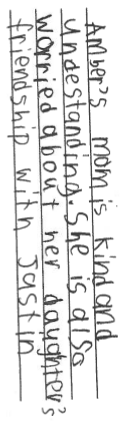 Amber's mom is kind and
undestanding. She is also
worried about her daughter's
friendship with Justin